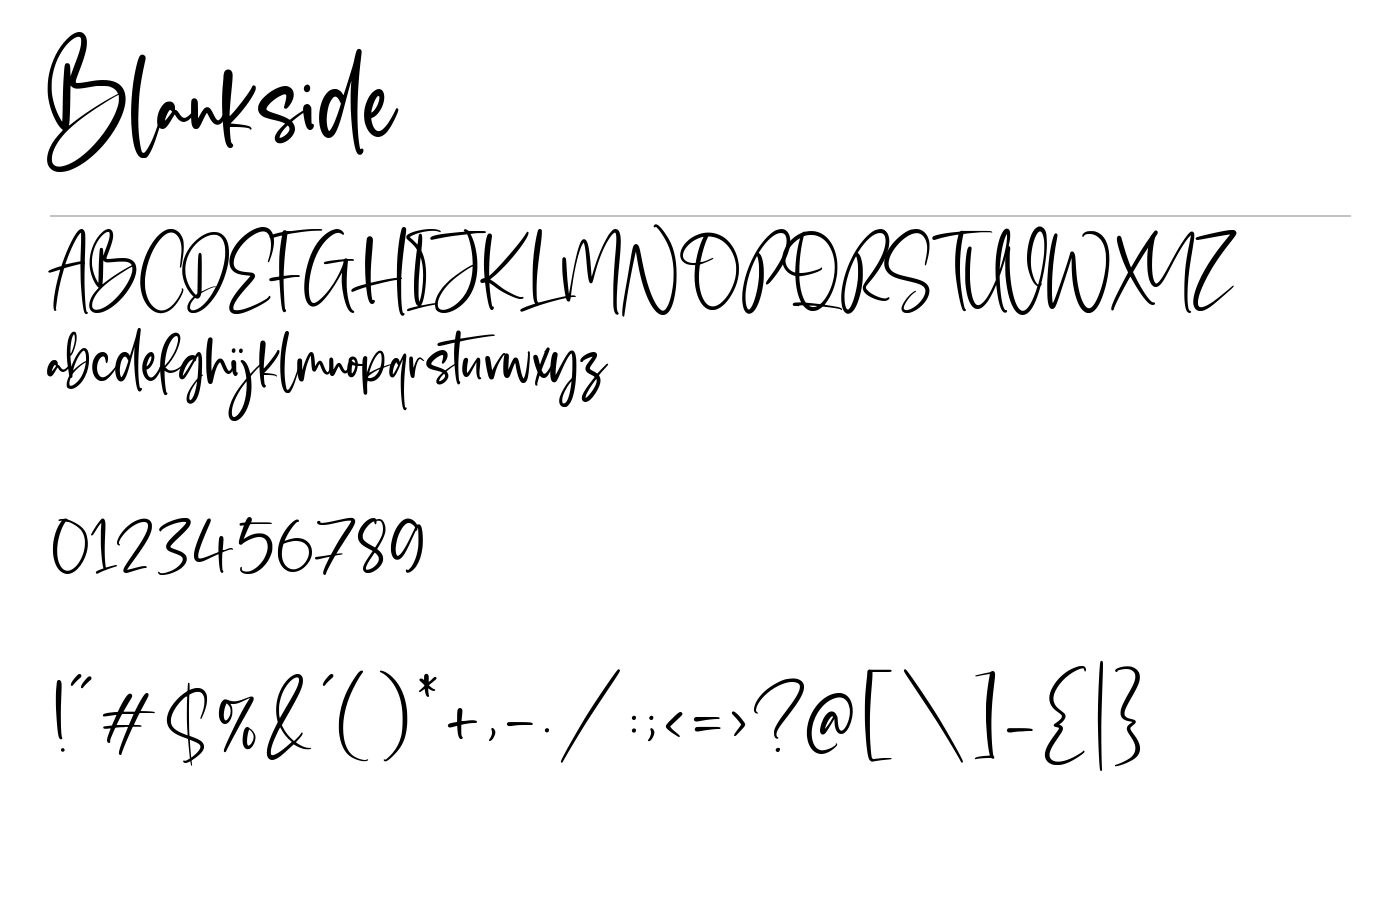 Blankside
ABCDEFGHIJKLMNOPQRSTUVWXYZ
abcdefghijklmnopqrstuvwxyz
0123456789
!"#$%&'()*+,-./:;<=>?@[\]_{|}